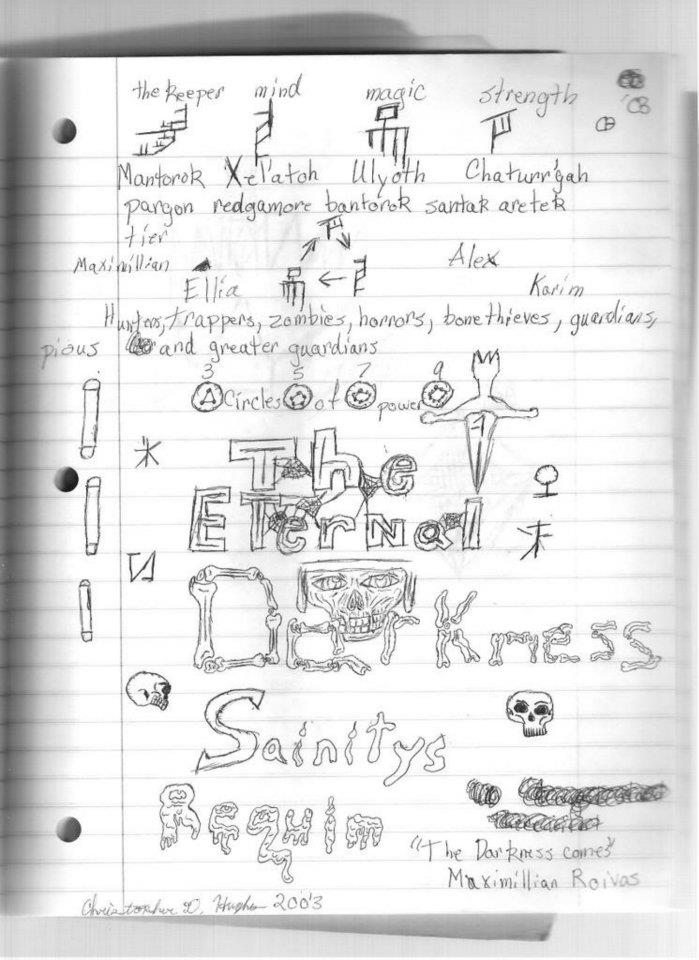 the Keeper mind magic strength
'03
Mantorok Xel'atoh Ulyoth Chaturr'gah
pargon redgamore bantorok santak aretek
tier
Maximillian Ellia Alex Karim
Hunters, trappers, zombies, horrors, bonethieves, guardians,
pious and greater guardians
3 5 7 9
Circles of power
The
ETernal
DarKness
Sainitys
Requim
"The Darkness comes"
Maximillian Roivas
Christopher D. Hughes 2003